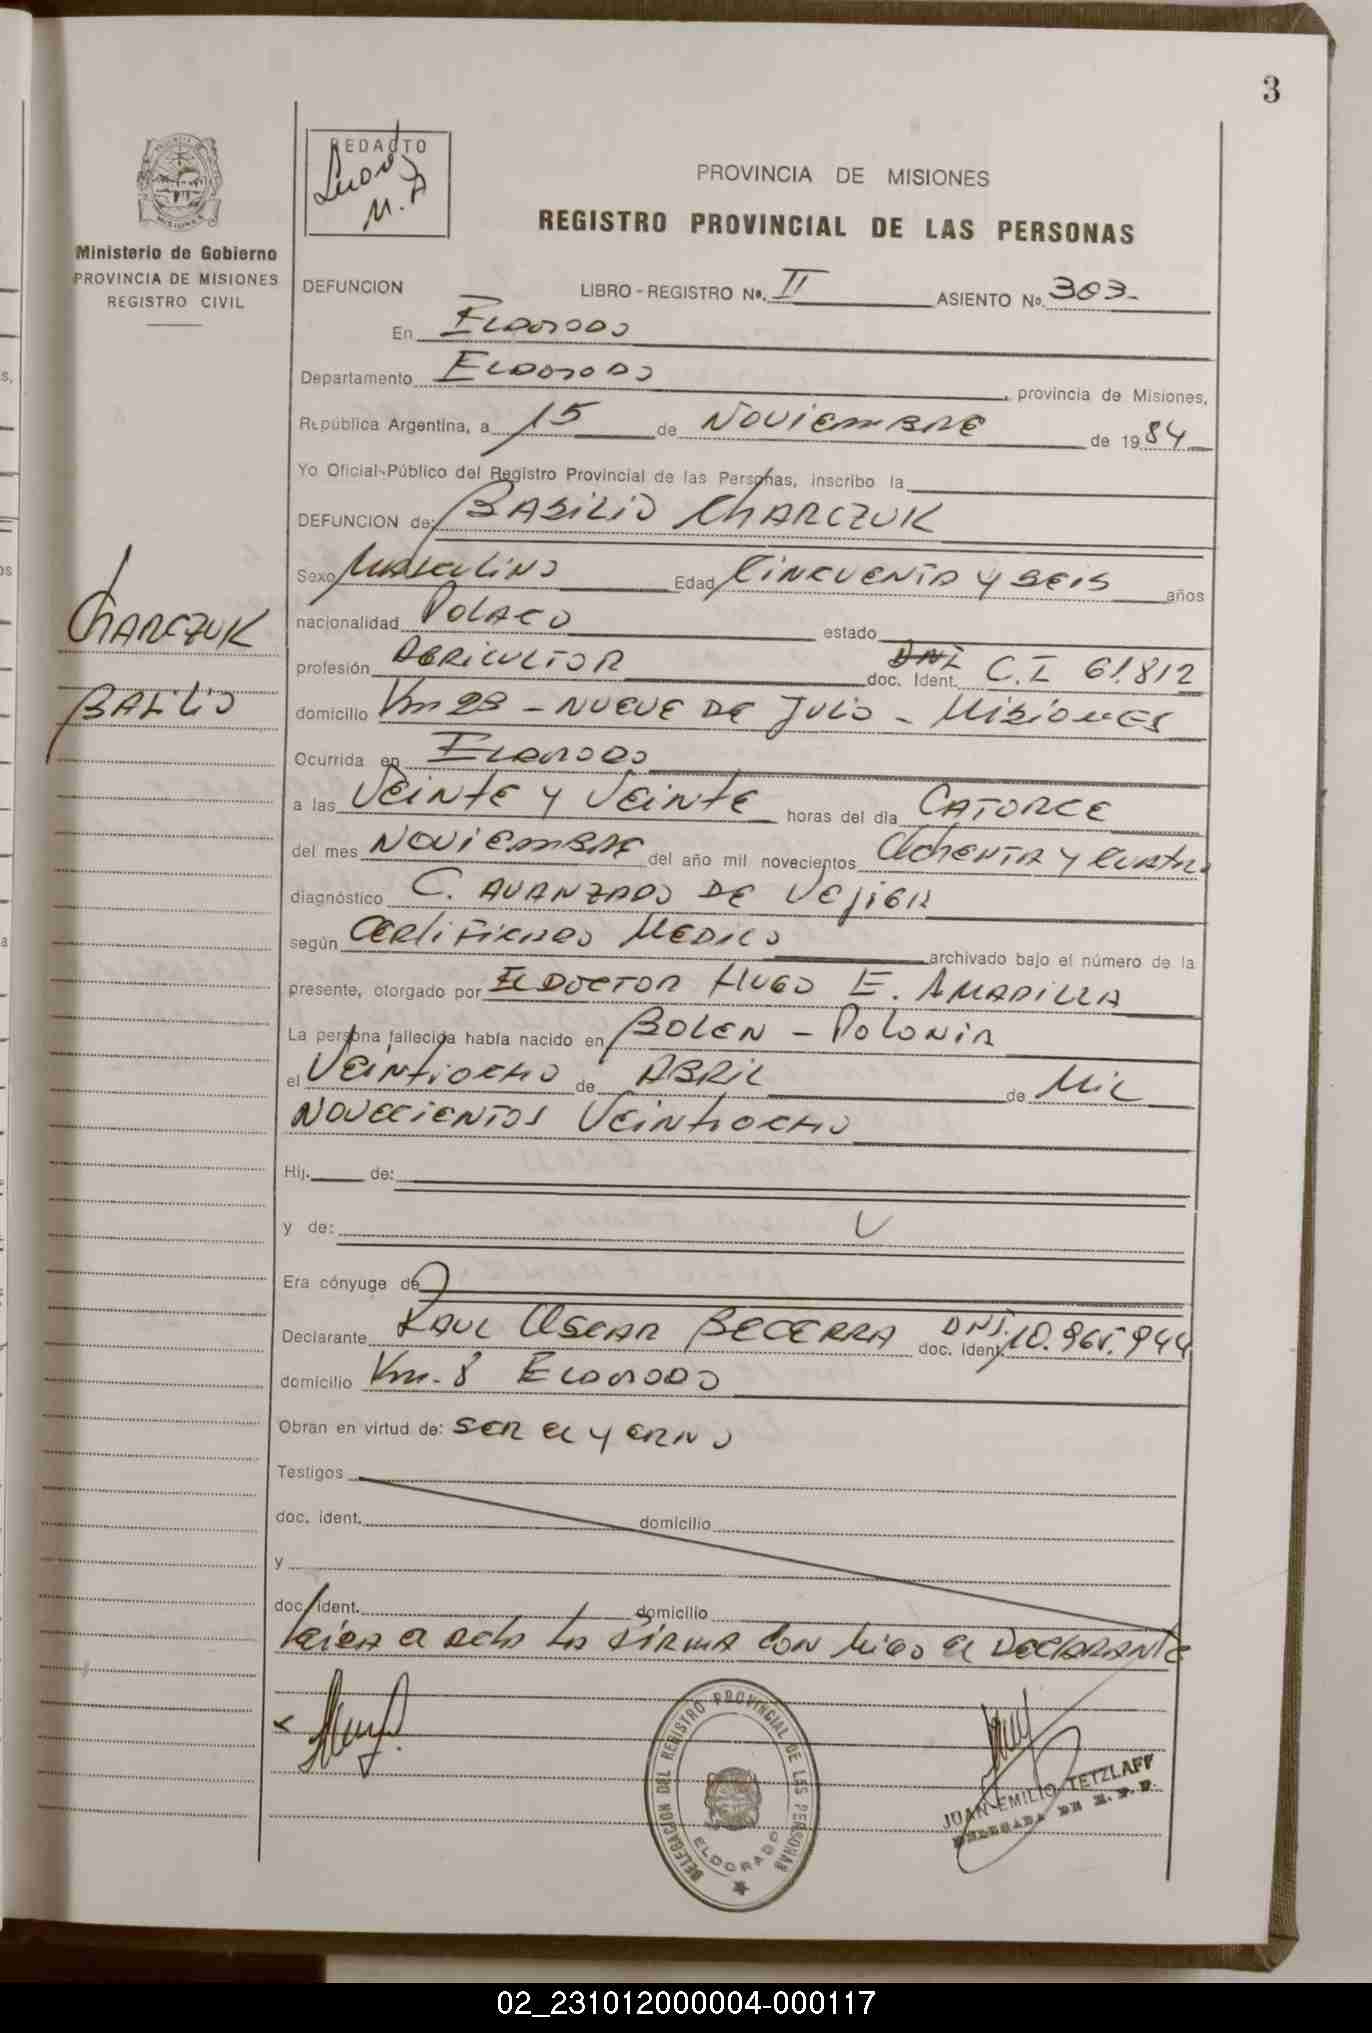 3
REDACTO
M. A
Ministerio de Gobierno
PROVINCIA DE MISIONES
REGISTRO CIVIL
PROVINCIA DE MISIONES
REGISTRO PROVINCIAL DE LAS PERSONAS
DEFUNCION LIBRO-REGISTRO Nº. II ASIENTO Nº. 303.
En ELDORADO
Departamento ELDORADO, provincia de Misiones,
República Argentina, a 15 de NOVIEMBRE de 1984
Yo Oficial-Público del Registro Provincial de las Personas, inscribo la
DEFUNCION de: BASILIO CHARCZUK
Sexo MASCULINO Edad CINCUENTA Y SEIS años
CHARCZUK
BASILIO
nacionalidad POLACO estado
profesión AGRICULTOR doc. Ident. DNI C.I 61.812
domicilio Km 28 - NUEVE DE JULIO - MISIONES
Ocurrida en ELDORADO
a las VEINTE Y VEINTE horas del día CATORCE
del mes NOVIEMBRE del año mil novecientos OCHENTA Y CUATRO
diagnóstico C. AVANZADO DE VEJIGA
según CERTIFICADO MEDICO archivado bajo el número de la
presente, otorgado por EL DOCTOR HUGO E. AMARILLA
La persona fallecida había nacido en BOLEN - POLONIA
el VEINTIOCHO de ABRIL de MIL
NOVECIENTOS VEINTIOCHO
Hij. de:
y de:
Era cónyuge de
Declarante RAUL OSCAR BECERRA doc. ident. DNI. 10.965.944
domicilio Km. 8 ELDORADO
Obran en virtud de: SER EL YERNO
Testigos
doc. ident. domicilio
y
doc. ident. domicilio
LEIDA EL ACTA LA FIRMA CON MIGO EL DECLARANTE
DELEGACION DEL REGISTRO PROVINCIAL DE LAS PERSONAS
ELDORADO
JUAN EMILIO TETZLAFF
DELEGADA DE R. P. P.
02_231012000004-000117